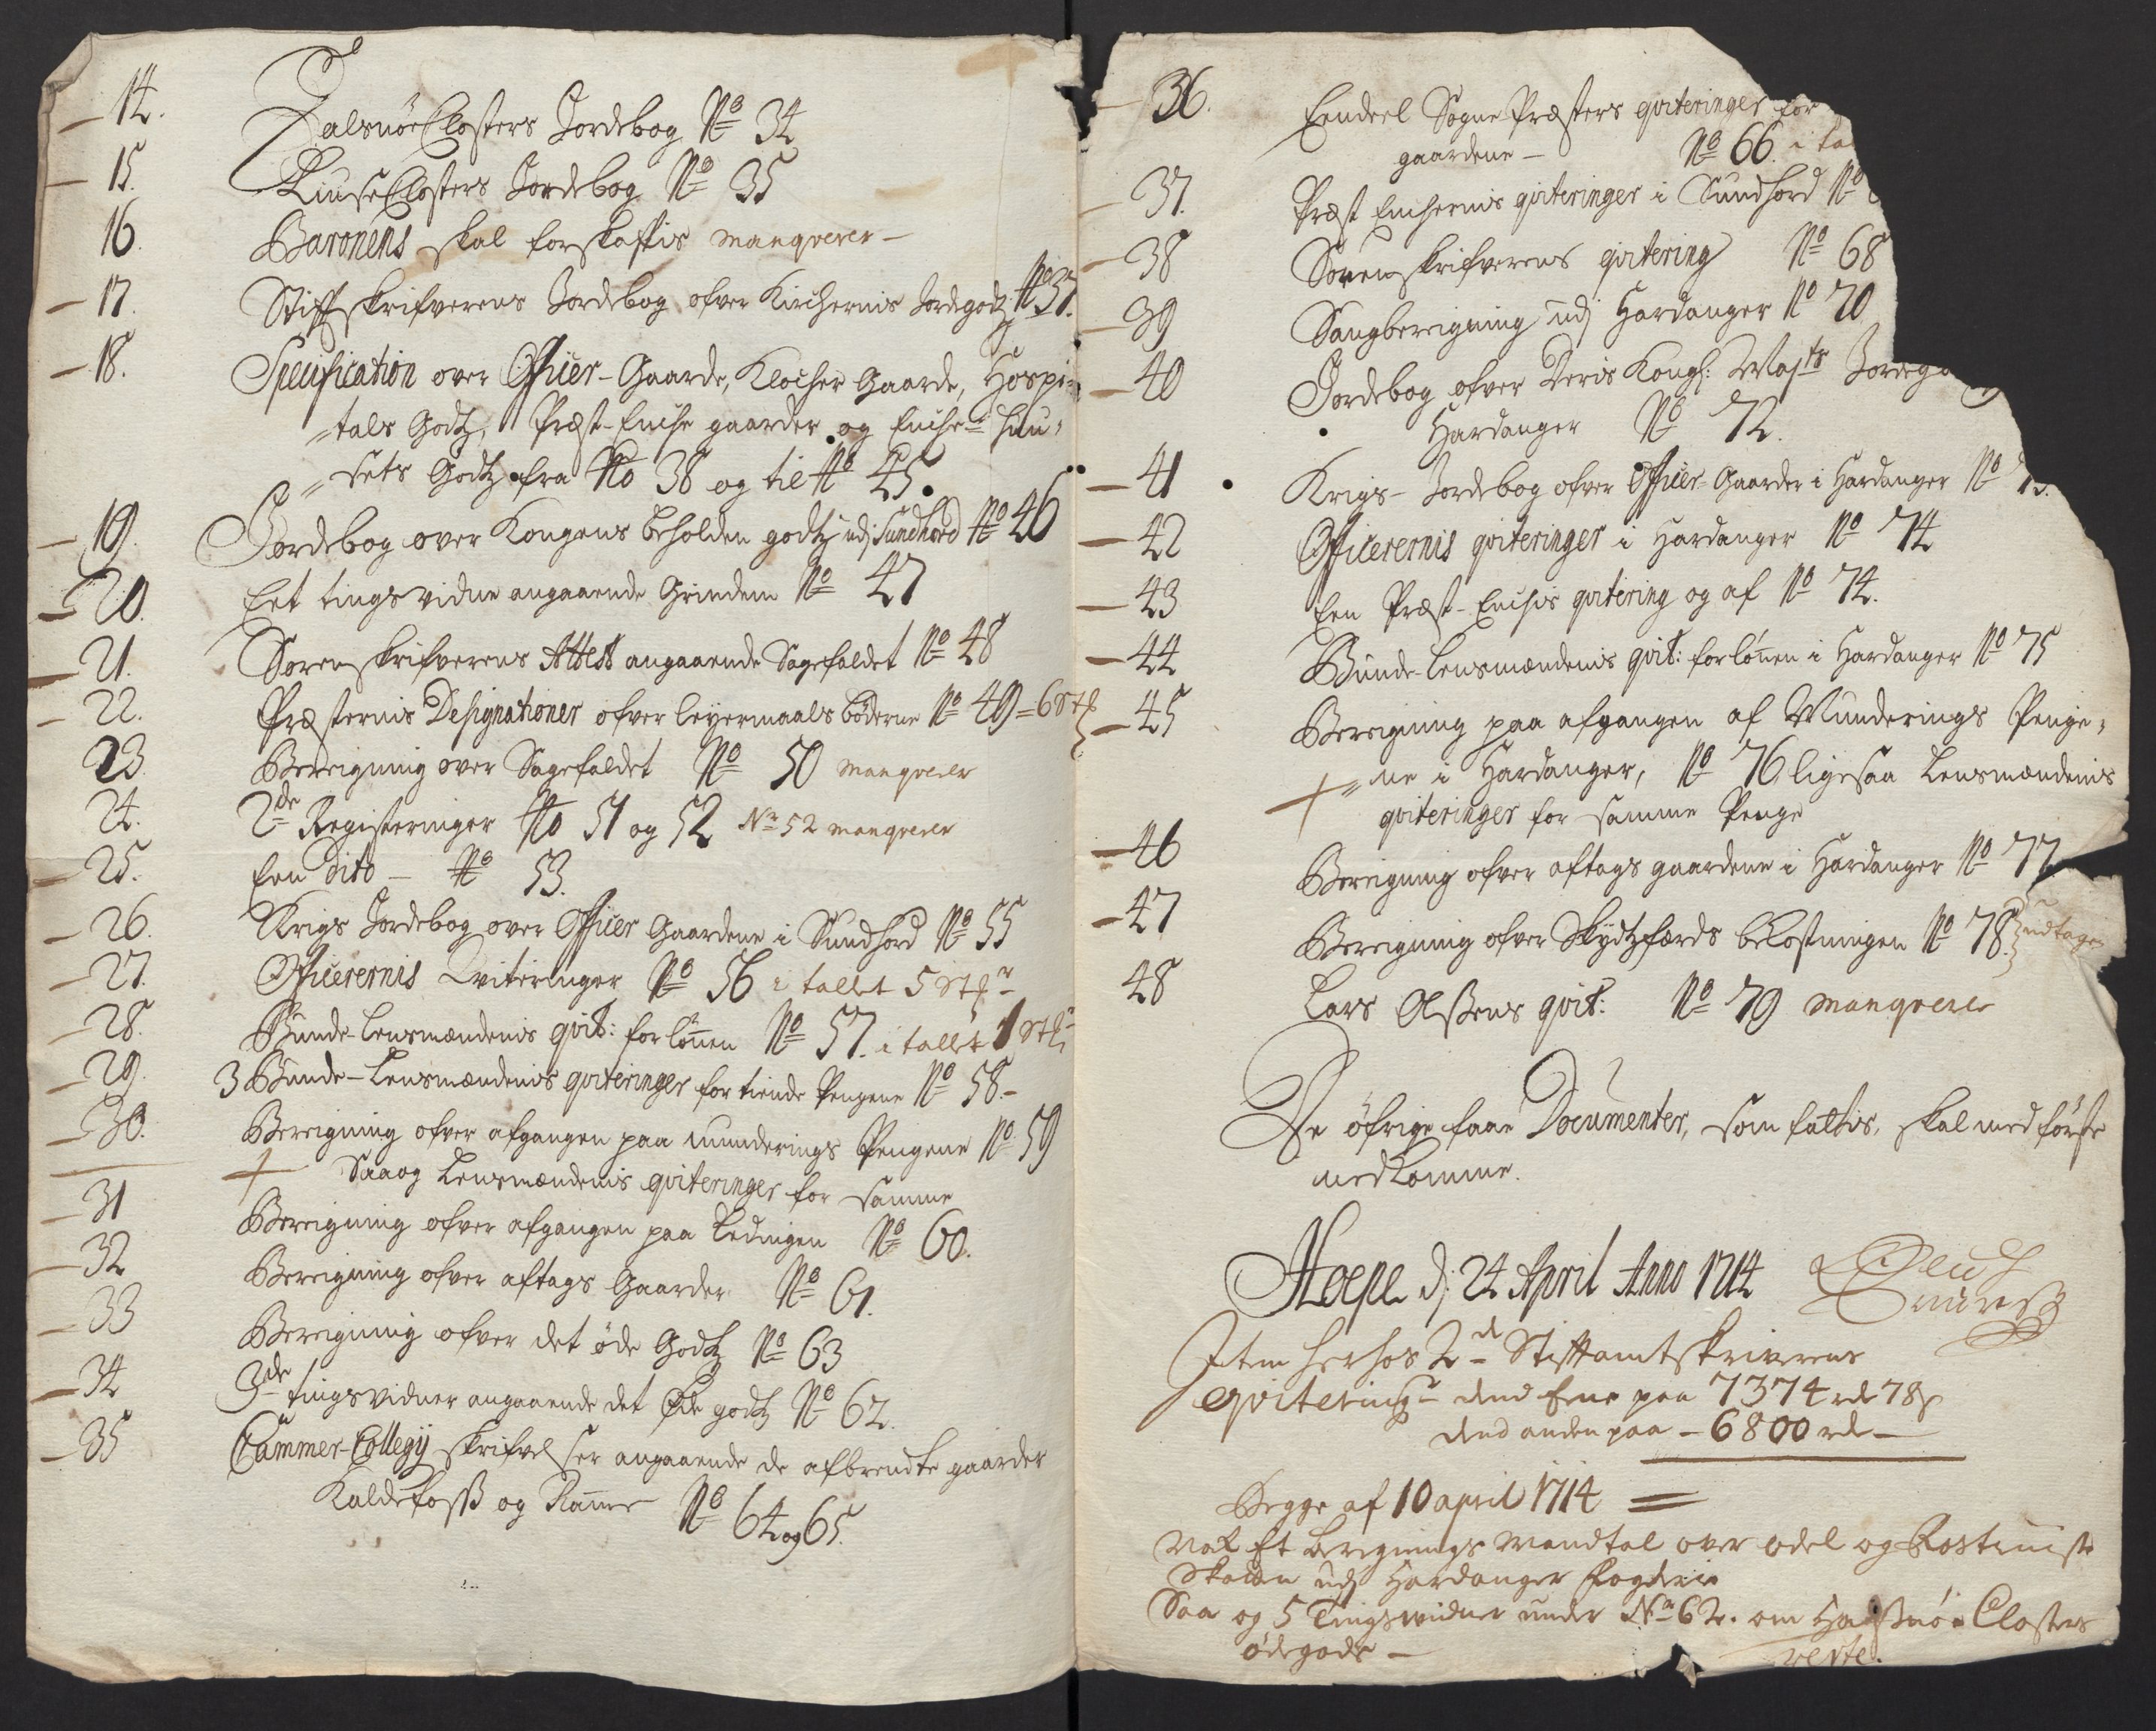 14. Halsnöe Closters Jordebog No 34
15. Liuse Closters Jordebog No 35
16. Baronens skal forskaffis manqverer
17. Stiffts skrifverens Jordebog ofver Kirchernis Jordegodz No 37.
18. Specification over Officer-Gaarde, Klocher Gaarde, Hospi-
tals Godtz, Præst-Enche gaarder og Enche- huu-
sets Godtz fra No 38 og til No 45.
19. Jordebog over Kongens beholden godtz udj Sundhord No 46
20. Eet tingsvidne angaaende Grindem No 47
21. Sorenskrifverens Attest angaaende Sagefaldet No 48
22. Præsternis Designationer ofver leyermaals böderne No 49 = 6 st
23. Beregning over Sagefaldet No 50 manqverer
24. 2de Registeringer No 51 og 52 No 52 manqverer
25. Een Dito No 53.
26. Krigs Jordebog over Officer Gaardene i Sundhord No 55
27. Officerernis Qviteringer No 56 i tallet 5 st
28. Bunde-Lensmændenis qvit: for lönen No 57. i tallet 1 st
29. 3 Bunde-Lensmændenis qviteringer for tiende Pengene No 58.
30. Beregning ofver afgangen paa munderings Pengene No 59
+ Saa og Lensmændenis qviteringer for samme
31 Beregning ofver afgangen paa Ledingen No 60.
32 Beregning ofver aftags Gaarder No 61.
33 Beregning ofver det öde Godtz No 63
34 3de tingsvidner angaaende det Öde godtz No 62.
35 Cammer-Collegij skrifvelser angaaende de afbrendte gaarder
Kaldefoss og No 64 og 65.
36. Eendeel Sogne Præsters qviteringer for
gaardene No 66. i
37. Præst Enchernis qviteringer i Sundhord No
38 Sorenskrifverens qvitering No 68
39 Saugberegning udj Hardanger No 70
40 Jordebog ofver Deris Kongl: Majts
Hardanger No 72.
41 Krigs-Jordebog ofver Officer-Gaarder i Hardanger No 73.
42 Officerernis qviteringer i Hardanger No 74
43 Een Præst-Enchis qvitering og af No 74.
44 Bunde-Lensmændenis qvit: for lönen i Hardanger No 75
45 Beregning paa afgangen af Munderings Penge-
+ ne i Hardanger, No 76 ligesaa Lensmændenis
qviteringer for samme Penge
46 Beregning ofver aftags gaardene i Hardanger No 77
47 Beregning ofver Skydtzfærds bekostningen No 78. udtagen
48 Lars Olssens qvit: No 79 manqverer
De öfrige faae Documenter, som fattis, skal med förste
nedkomme.
Hoepe d: 24 April Anno 1714
Item herhos 2de Stiftamtskriverens
qvitering dend Ene paa 7374 rd 78 s
dend anden paa - 6800 rd
Begge af 10 april 1714
Nok Et beregnings Mandtal over odel og
Skatten udj Hardanger fogderie
Saa og 5 Tingsvidner under No 62. om Halsnöe Closters
ödegods